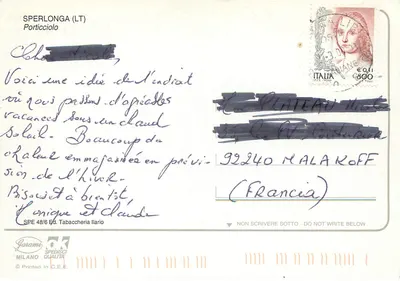 SPERLONGA (LT)
Porticciolo
Voici une idée de l'endroit
où nous passons d'agréables
vacances sous un chaud
soleil - Beaucoup de
chaleur emmagasinée en prévi-
sion de l'hiver.
Bisous et à bientôt,
Monique et Claude
SPE 48/6 Ed. Tabaccheria Ilario
MILANO
ITALIA
€ 0,41
800
92240 MALAKOFF
(Francia)
NON SCRIVERE SOTTO - DO NOT WRITE BELOW